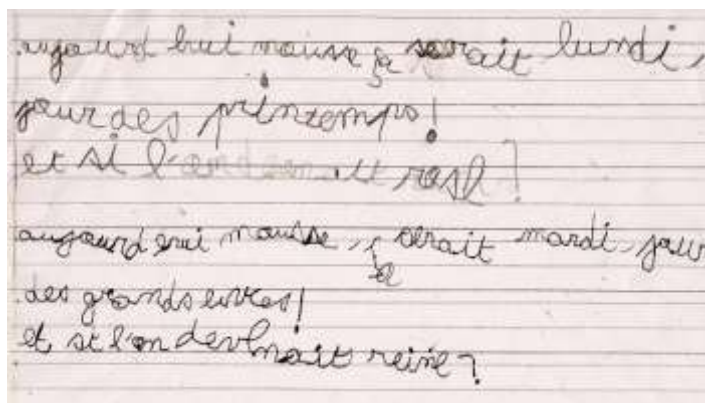 aujourd hui mousse ça serait lundi,
jour des printemps!
et si l'on
aujourd erui mousse, ça serait mardi, jour
des grands livres!
et si l'on devenait reine?